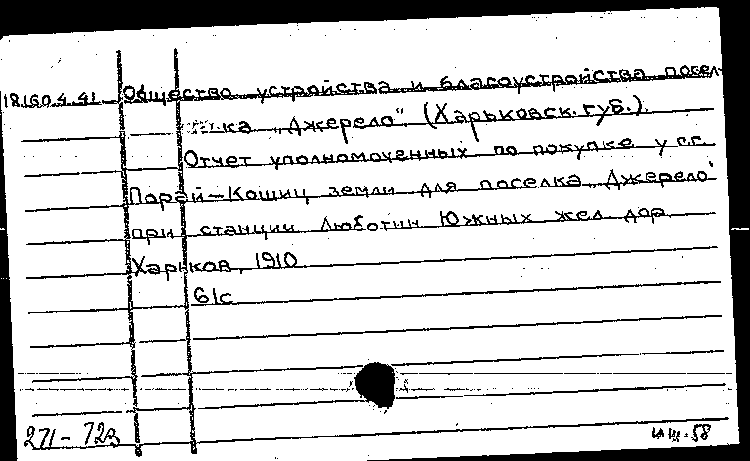 18.160.4.41 Общество устройства и благоустройства посел-
ка „Джерело" (Харьковск. губ.).
Отчет уполномоченных по покупке у г.г.
Парай-Кошиц земли для поселка „Джерело"
при станции Люботин Южных жел дор
Харьков, 1910
61с
271-72
58